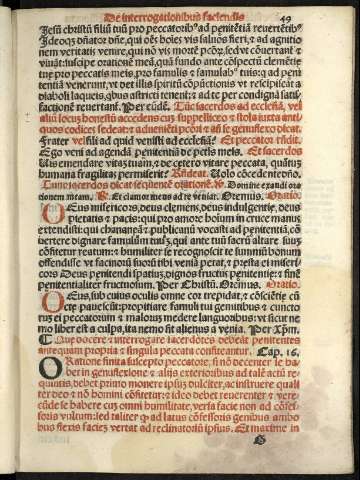 De interrogationibus faciendis 49
Jesū christū filiū tuū pro peccatoribꝰ ad penitētiā reuertētibꝰ
Ideoqꝫ dn̄ator dn̄e, qui oēs hoīes vis saluos fieri, ⁊ ad agnitio
nem veritatis venire, qui nō vis mortē pctōꝝ, sed vt cōuertant̄ ⁊
viuāt: suscipe orationē meā, quā fundo ante cōspectū clemētie
tue pro peccatis meis, pro famulis ⁊ famulabꝰ tuis: q̄ ad peni
tentiā venerunt, vt det illis spiritū cōpūctionis vt respiciāt a
diaboli laqueis, qbus astricti tenent̄: ⁊ ad te per condignā satis
factionē reuertant̄. Per eūdē. Tūc sacerdos ad ecclesiā, vel
aliū locus honestū accedens cuʒ suppelliceo ⁊ stola iuxta anti
quos codices sedeat: ⁊ adueniēti pctōri ⁊ añ se genuflexo dicat.
Frater vel fili ad quid venisti ad ecclesiā? Et peccator rn̄dit.
Ego veni ad agendā penitentiā de pctīs meis. Et sacerdos
Vis emendare vitaʒ tuam, ⁊ de cetero vitare peccata, quātuʒ
humana fragilitas permiserit? Rn̄deat. Uolo cōcedente dn̄o.
Tunc sacerdos dicat sequētē orationē. V. Domine exaudi ora
tionem meam. R. Et clamor meus ad te veniat. Oremus. Oratio.
DEus misericors, deus clemens, deus indulgentie, deus
pietatis ⁊ pacis: qui pro amore hoīum in cruce manus
extendisti: qui chananeā ⁊ publicanū vocasti ad penitentiā, cō
uertere dignare famulum tuūʒ, qui ante tuū sacrū altare suuʒ
cōfitetur reatum: ⁊ humiliter se recognoscit te summū bonum
offendisse vt facinoꝝ suoꝝ tibi venia petat, ⁊ presta ei miseri
cors Deus penitendi spatiuʒ, dignos fructus penitentie: ⁊ finē
penitentialiter fructuosum. Per Christū. Oremus. Oratio.
DEus, sub cuius oculis omne cor trepidat, ⁊ cōsciētie cū
cte paue̅scūt: propitiare famuli tui gemitibus ⁊ cuncto
rum ei peccatorum ⁊ maloꝝ medere languoribus: vt sicut ne
mo liber est a culpa, ita nemo sit alienus a venia. Per Xp̄m.
Quo pacto docere ⁊ interrogare sacerdotes debeāt penitentes
antequam propria ⁊ singula peccata confiteantur. Cap. 16.
ORatione finita suscepto peccatore, si nō decenter se ha
beat in genuflexione ⁊ alijs exterioribus ad talē actū re
quisitis, debet primo monere ipsuʒ dulciter, ac instruere quali
ter deo ⁊ nō homini cōfitetur: ⁊ ideo debet reuerenter ⁊ vere
cūde se habere cuʒ omni humilitate, versa facie non ad cōfes
soris vultum: sed taliter ꝙ ad latus cōfessoris genibus ambo
bus flexis faciem vertat ad reclinatoriū ipsius. Et maxime in
G